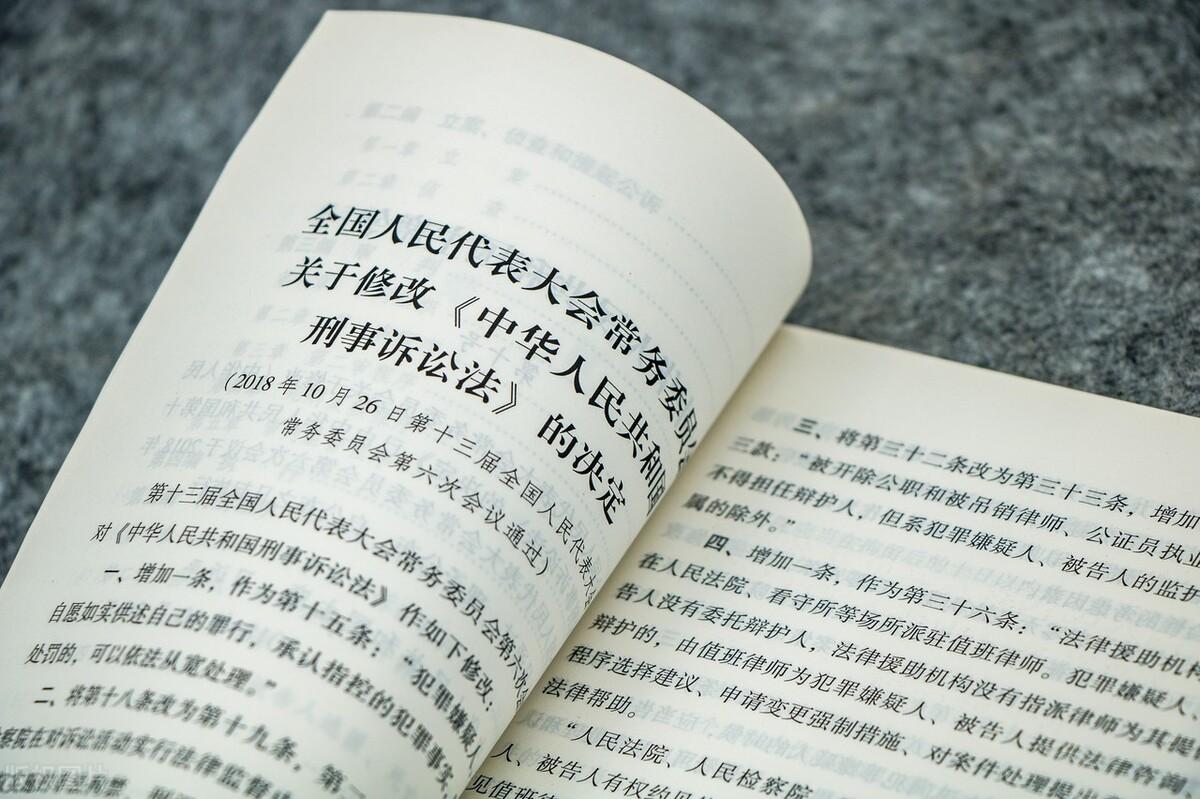 全国人民代表大会常务委员
关于修改《中华人民共和国
刑事诉讼法》的决定
（2018年10月26日第十三届全国人民代表大
常务委员会第六次会议通过）
第十三届全国人民代表大会常务委员会第六次
对《中华人民共和国刑事诉讼法》作如下修改：
一、增加一条，作为第十五条：“犯罪嫌疑人
自愿如实供述自己的罪行，承认指控的犯罪事实
处罚的，可以依法从宽处理。”
二、将第十八条改为第十九条，第
察院在对诉讼活动实行法律监督
三、将第三十二条改为第三十三条，增加
三款：“被开除公职和被吊销律师、公证员执业
不得担任辩护人，但系犯罪嫌疑人、被告人的监护
属的除外。”
四、增加一条，作为第三十六条：“法律援助机构
在人民法院、看守所等场所派驻值班律师。犯罪嫌疑人、
告人没有委托辩护人，法律援助机构没有指派律师为其提
辩护的，由值班律师为犯罪嫌疑人、被告人提供法律咨询、
程序选择建议、申请变更强制措施、对案件处理提出
法律帮助。
“人民法院、人民检察院
人、被告人有权约见
见值班律